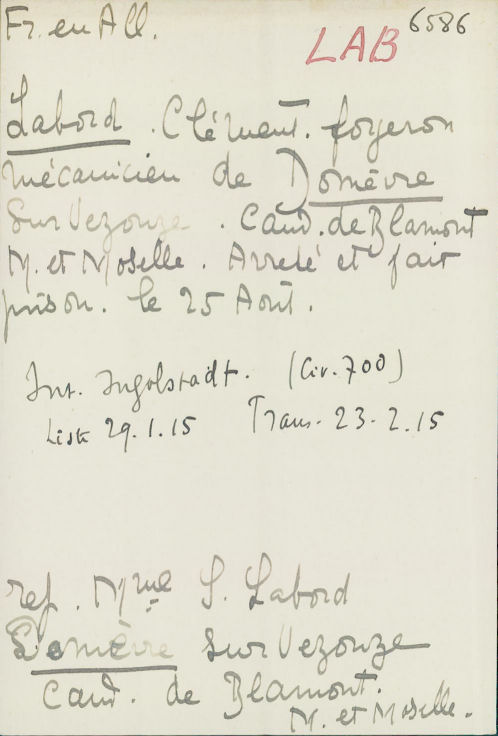 Fr. en All.
LAB 6586
Labord. Clément. forgeron
mécanicien de Domèvre
sur Vezouze. Cant. de Blamont
M. et Moselle. Arreté et fait
prison. le 25 Août.
Int. Ingolstadt. (Civ. 700)
Liste 29.1.15 Trans. 23.2.15
ref. Mme S. Labord
Domèvre sur Vezouze
Cant. de Blamont.
M. et Moselle.